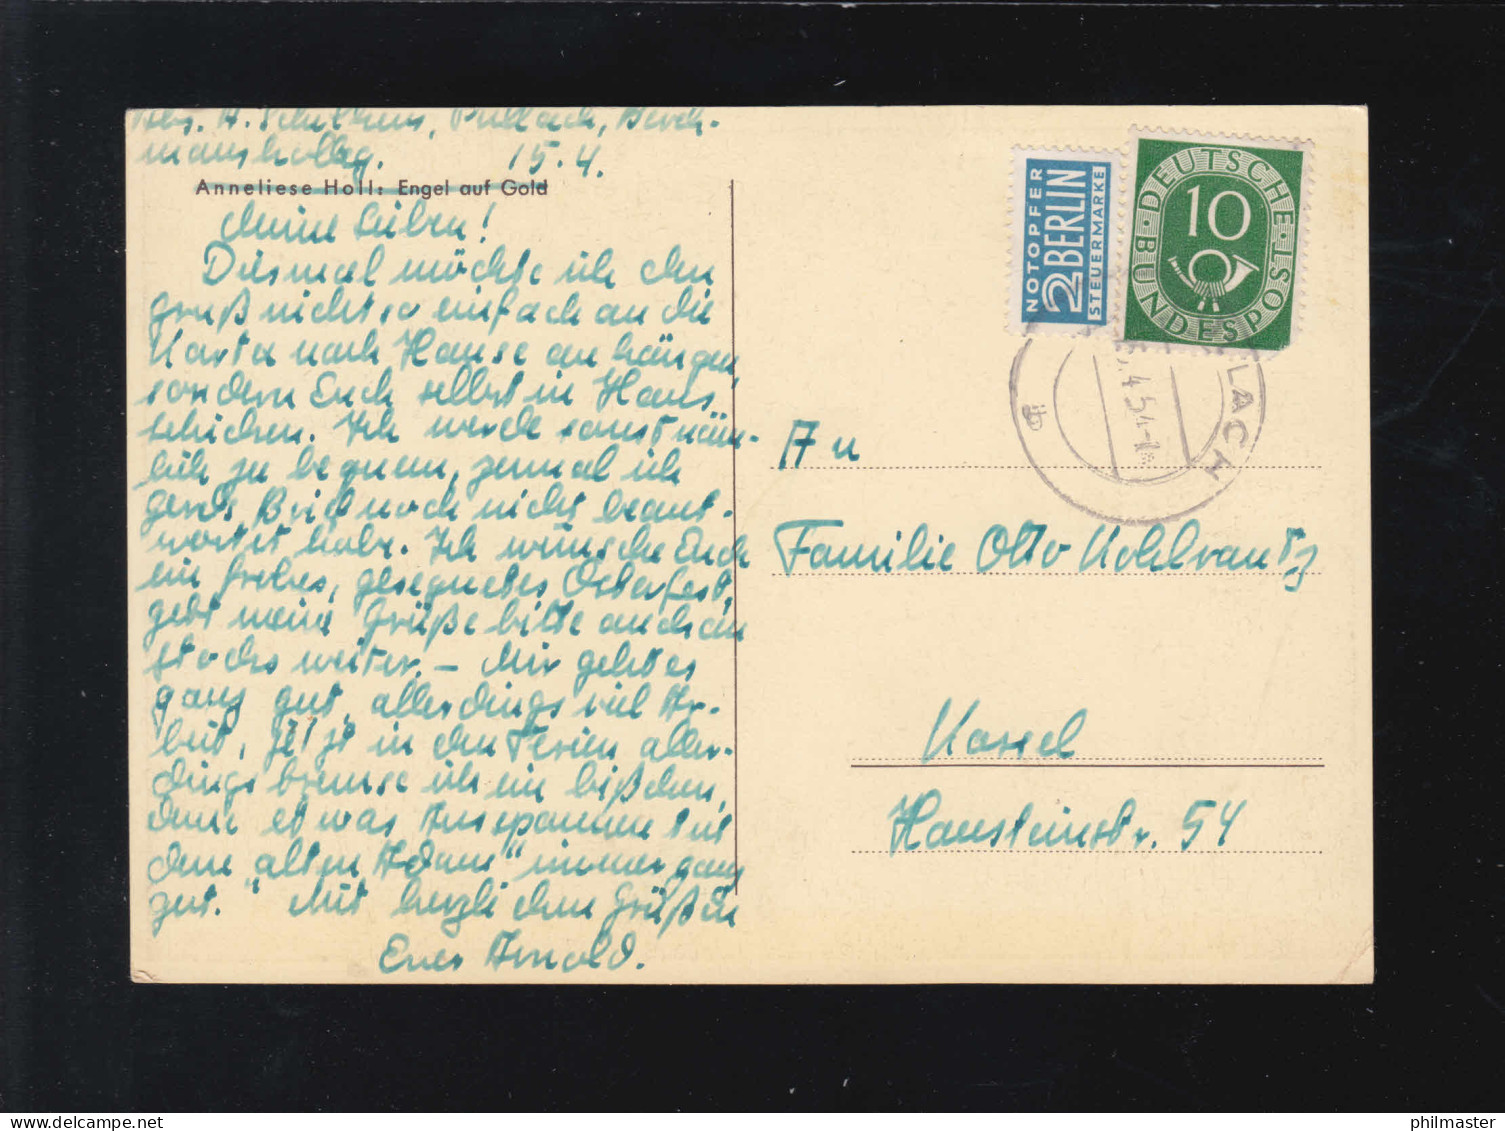 Abs. A. Schulheus, Pullach, Berch-
manskolleg. 15.4.
Anneliese Holl: Engel auf Gold
Meine Lieben!
Diesmal möchte ich den
Gruß nicht so einfach an die
Karte nach Hause anhängen,
sondern Euch selbst in Haus
schicken. Ich werde sonst näm-
lich zu bequem, zumal ich
Gerds Brief noch nicht beant-
wortet habe. Ich wünsche Euch
ein frohes, gesegnetes Osterfest,
gebt meine Grüße bitte auch an
weiter. – Mir geht es
ganz gut, allerdings viel Ar-
beit. Jetzt in den Ferien aller-
dings bremse ich ein bißchen,
denn etwas Ausspannen tut
dem "alten Adam" immer ganz
gut. Mit herzlichen Grüßen
Euer Arnold.
NOTOPFER
2 BERLIN
STEUERMARKE
DEUTSCHE BUNDESPOST
10
LACH
.4.54-1
An
Familie Otto Kohlrautz
Kassel
Hausteinstr. 54
philmaster